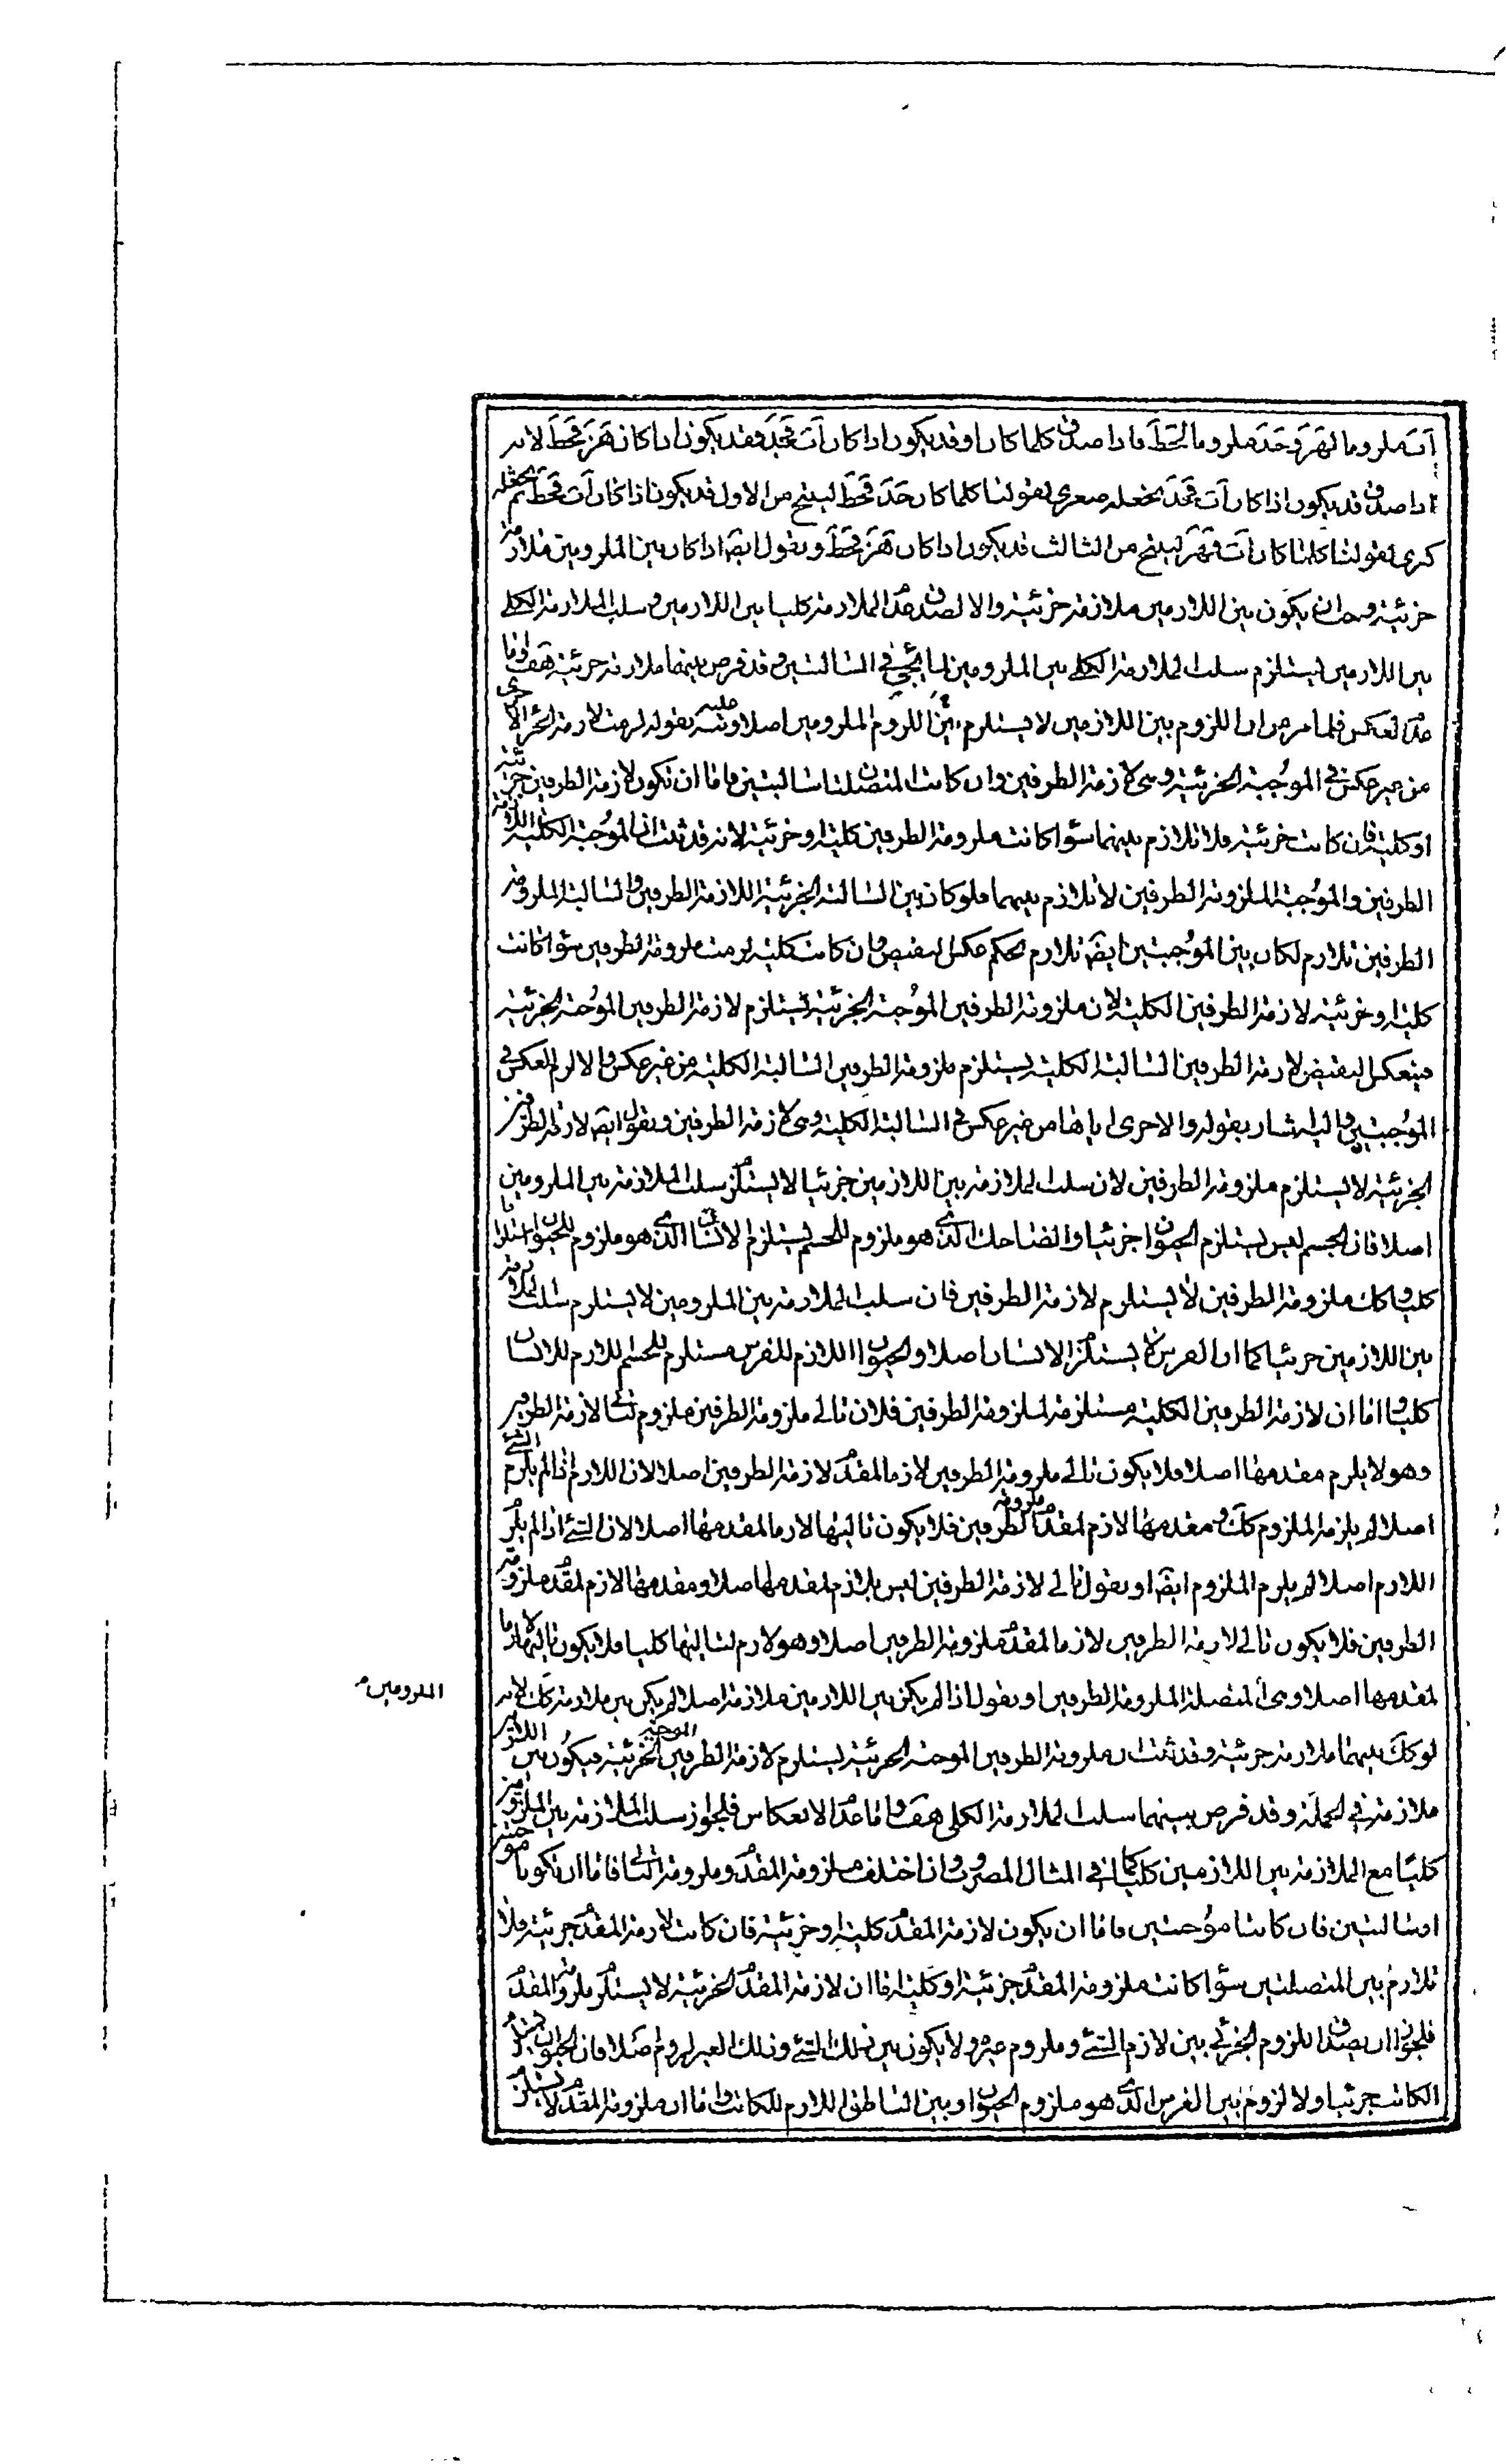 اَب ملزوما لهَز وجَد ملزوما لحَط فاذا صدق كلما كان او قد يكون اذا كان اَب فجَد فقد يكون اذا كان هَز فحَط لانه
اذا صدق قد يكون اذا كان اَب فجَد نجعله صغرى لقولنا كلما كان جَد فحَط لينتج من الاول قد يكون اذا كان اَب فحَط ثم نجعله
كبرى لقولنا كلما كان اَب فهَز لينتج من الثالث قد يكون اذا كان هَز فحَط ونقول ايضه اذا كان بين الملزومين ملازمة
جزئية وجب ان يكون بين اللازمين ملازمة جزئية والا لصدق عدم الملازمة كليا بين اللازمين وسلب الملازمة الكلى
بين اللازمين يستلزم سلب الملازمة الكلى بين الملزومين لما يجئ فى السالبتين وقد فرض بينهما ملازمة جزئية هف واما
عدم العكس فلما مر من ان اللزوم بين اللازمين لا يستلزم اللزوم بين الملزومين اصلا ونبه عليه بقوله لزمت لازمة الجزأ الاخرى
من غير عكس فى الموجبة الجزئية وهى لازمة الطرفين وان كانت المتصلتان سالبتين فاما ان تكون لازمة الطرفين جزئية
او كلية فان كانت جزئية فلا تلازم بينهما سواء كانت ملزومة الطرفين كلية او جزئية لانه قد ثبت ان الموجبة الكلية اللازمة
الطرفين والموجبة الملزومة الطرفين لا تلازم بينهما فلو كان بين السالبة الجزئية اللازمة الطرفين والسالبة الملزومة
الطرفين تلازم لكان بين الموجبتين ايضه تلازم بحكم عكس النقيض وان كانت كلية لزمت ملزومة الطرفين سواء كانت
كلية او جزئية لازمة الطرفين الكلية لان ملزومة الطرفين الموجبة الجزئية تستلزم لازمة الطرفين الموجبة الجزئية
فينعكس النقيض لازمة الطرفين السالبة الكلية يستلزم ملزومة الطرفين السالبة الكلية من غير عكس والا لزم العكس فى
الموجبتين واليه اشار بقوله والاخرى اياها من غير عكس فى السالبة الكلية وهى لازمة الطرفين ونقول ايضه لازمة الطرفين
الجزئية لا يستلزم ملزومة الطرفين لان سلب الملازمة بين اللازمين جزئيا لا يستلزم سلب الملازمة بين الملزومين
اصلا فان الجسم ليس يستلزم الحيوان جزئيا والضاحك الذى هو ملزوم للجسم يستلزم الانسان الذى هو ملزوم للحيوان استلزاما
كليا وكك ملزومة الطرفين لا يستلزم لازمة الطرفين فان سلب الملازمة بين الملزومين لا يستلزم سلب الملازمة
بين اللازمين جزئيا كما ان الفرس لا يستلزم الانسان اصلا والحيوان اللازم للفرس مستلزم للجسم اللازم للانسان
كليا واما ان لازمة الطرفين الكلية مستلزمة لملزومة الطرفين فلان تالى ملزومة الطرفين ملزوم لتالى لازمة الطرفين
وهو لا يلزم مقدمها اصلا فلا يكون تالى ملزومة الطرفين لازما لمقدم لازمة الطرفين اصلا لان اللازم اذا لم يلزم الشئ
اصلا لم يلزمه الملزوم كك ومقدمها لازم لمقدم ملزومة الطرفين فلا يكون تاليها لازما لمقدمها اصلا لان الشئ اذا لم يلزم
اللازم اصلا لم يلزم الملزوم ايضه او نقول تالى لازمة الطرفين ليس بلازم لمقدمها اصلا ومقدمها لازم لمقدم ملزومة
الطرفين فلا يكون تالى لازمة الطرفين لازما لمقدم ملزومة الطرفين اصلا وهو لازم لتاليها كليا فلا يكون تاليها لازما
لمقدمها اصلا وهى المتصلة الملزومة الطرفين او نقول اذا لم يكن بين اللازمين ملازمة اصلا لم يكن بين ملازمة كك لانه
الملزومين
لو كك بينهما ملازمة جزئية وقد ثبت ان ملزومة الطرفين الموجبة الجزئية يستلزم لازمة الطرفين الموجبة الجزئية فيكون بين اللازمين
ملازمة فى الجملة وقد فرض بينهما سلب الملازمة الكلى هف واما عدم الانعكاس فلجواز سلب الملازمة بين الملزومين
كليًا مع الملازمة بين اللازمين كليا كما فى المثال المضروب واذا اختلف ملزومة المقدم وملزومة التالى فاما ان تكونا موجبتين
او سالبتين فان كانتا موجبتين فاما ان يكون لازمة المقدم كلية او جزئية فان كانت لازمة المقدم جزئية فلا
تلازم بين المتصلتين سواء كانت ملزومة المقدم جزئية او كلية اما ان لازمة المقدم الجزئية لا يستلزم ملزومة المقدم
فلجواز ان يصدق اللزوم الجزئى بين لازم الشئ وملزوم غيره ولا يكون بين ذلك الشئ وذلك الغير لزوم اصلا فان الحيوان يستلزم
الكاتب جزئيا ولا لزوم بين الفرس الذى هو ملزوم الحيوان وبين الناطق اللازم للكاتب واما ان ملزومة المقدم لا يستلزم